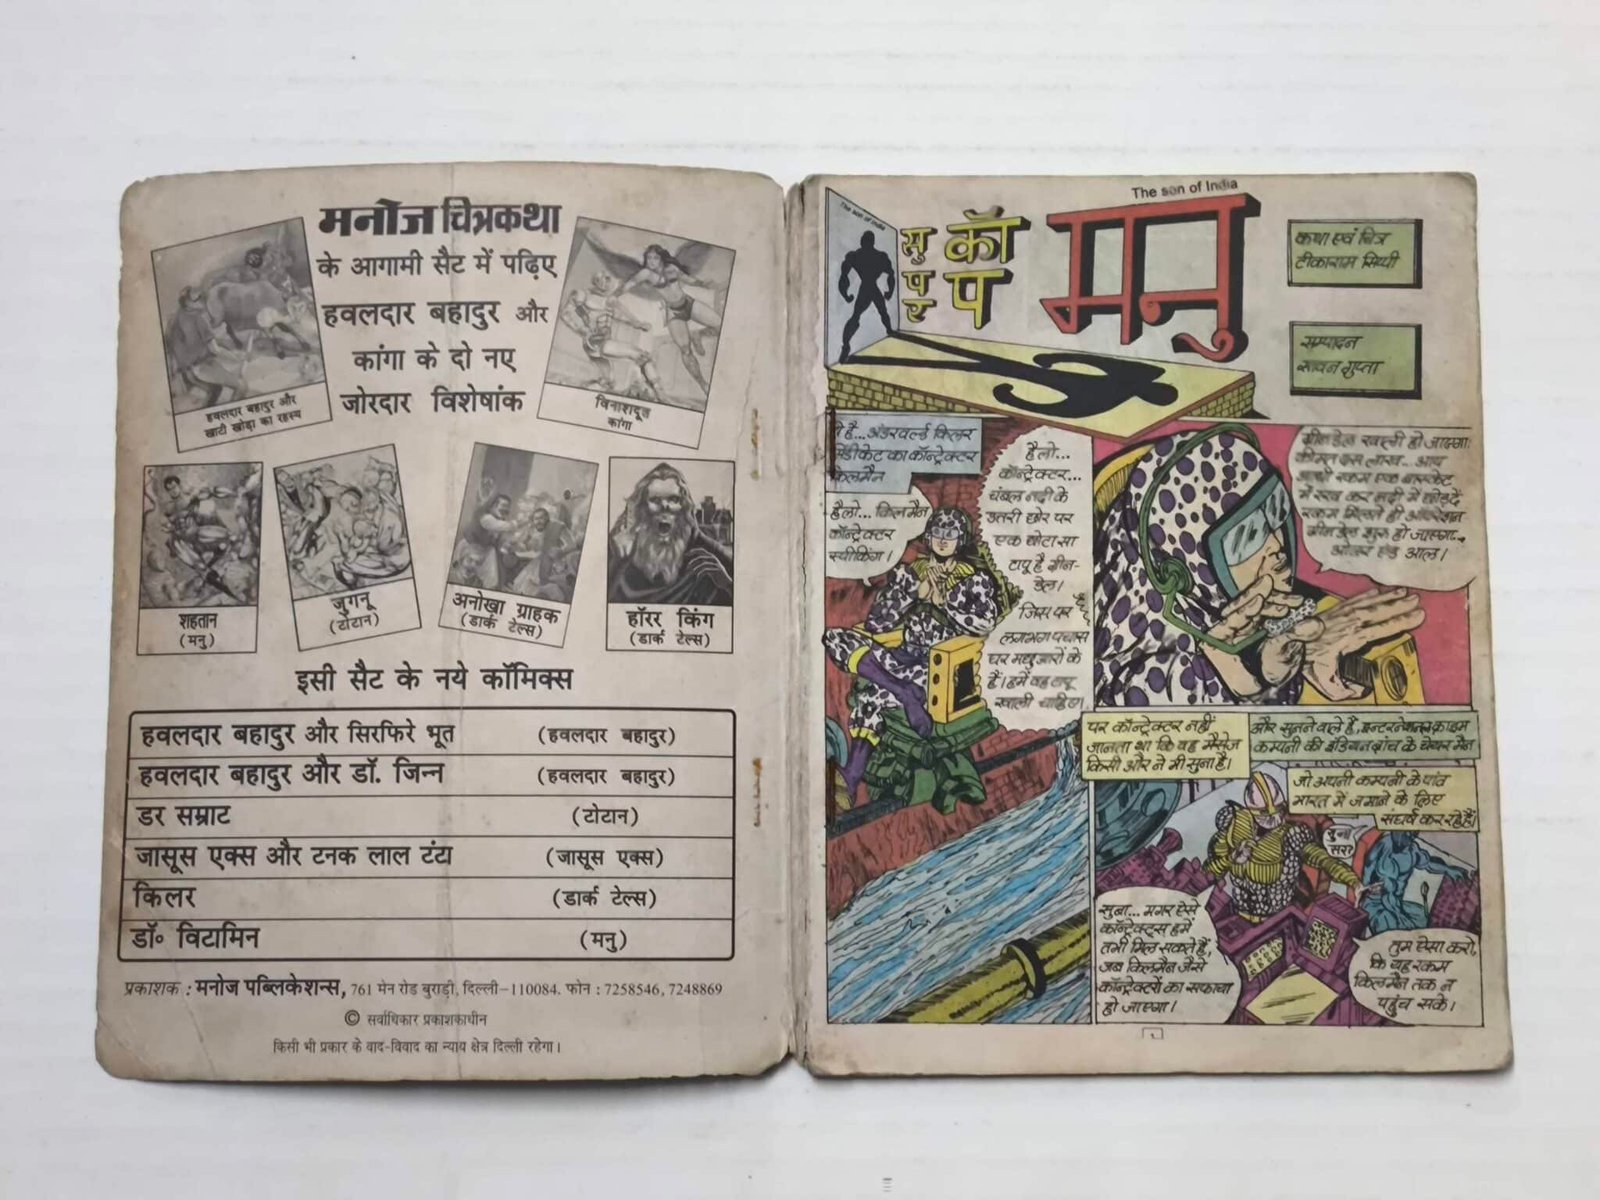 मनोज चित्रकथा
के आगामी सैट में पढ़िए
हवलदार बहादुर और
कांगा के दो नए
जोरदार विशेषांक
हवलदार बहादुर और
खाटी खोड़ा का रहस्य
विनाशदूत
कांगा
शहतान
(मनु)
जुगनू
(टोटान)
अनोखा ग्राहक
(डार्क टेल्स)
हॉरर किंग
(डार्क टेल्स)
इसी सैट के नये कॉमिक्स
हवलदार बहादुर और सिरफिरे भूत (हवलदार बहादुर)
हवलदार बहादुर और डॉ. जिन्न (हवलदार बहादुर)
डर सम्राट (टोटान)
जासूस एक्स और टनक लाल टंटा (जासूस एक्स)
किलर (डार्क टेल्स)
डॉ॰ विटामिन (मनु)
प्रकाशक : मनोज पब्लिकेशन्स, 761 मेन रोड बुराड़ी, दिल्ली-110084. फोन : 7258546, 7248869
© सर्वाधिकार प्रकाशकाधीन
किसी भी प्रकार के वाद-विवाद का न्याय क्षेत्र दिल्ली रहेगा।
The son of India
The son of India
सुपर कॉप मनु
कथा एवं चित्र
टीकाराम सिप्पी
सम्पादन
सावन गुप्ता
ये हैं... अंडरवर्ल्ड किलर
सिंडीकेट का कॉन्ट्रेक्टर
किलमैन
हैलो... किलमैन
कॉन्ट्रेक्टर
स्पीकिंग।
हैलो...
कॉन्ट्रेक्टर...
चंबल नदी के
उतरी छोर पर
एक छोटा सा
टापू है ग्रीन-
डेल।
जिस पर
लगभग पचास
घर मछुआरों के
हैं। हमें वह टापू
खाली चाहिए।
ग्रीनडेल खाली हो जाएगा।
कीमत दस लाख... आप
सारी रकम एक बास्केट
में रख कर नदी में छोड़ दें
रकम मिलते ही ऑपरेशन
ग्रीनडेल शुरू हो जाएगा,
ओवर एंड आल।
पर कॉन्ट्रेक्टर नहीं
जानता था कि वह मैसेज
किसी और ने भी सुना है।
और सुनने वाले हैं, इन्टरनेशनल क्राइम
कम्पनी की इंडियन ब्रांच के चेयरमैन
जो अपनी कम्पनी के पांव
भारत में जमाने के लिए
संघर्ष कर रहे हैं।
सुना
सर?
सुना... मगर ऐसे
कॉन्ट्रेक्ट्स हमें
तभी मिल सकते हैं,
जब किलमैन जैसे
कॉन्ट्रेक्टरों का सफाया
हो जाएगा।
तुम ऐसा करो,
कि यह रकम
किलमैन तक न
पहुंच सके।
1